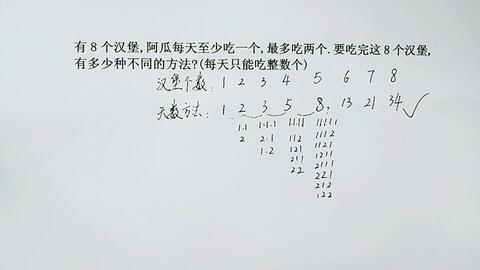 有 8 个汉堡, 阿瓜每天至少吃一个, 最多吃两个. 要吃完这 8 个汉堡,
有多少种不同的方法?(每天只能吃整数个)
汉堡个数: 1 2 3 4 5 6 7 8
天数方法: 1 2 3 5 8, 13 21 34 ✓
1·1 1·1·1 1111 11111
2 2·1 112 1112
1·2 121 1121
211 1211
22 2111
221
212
122